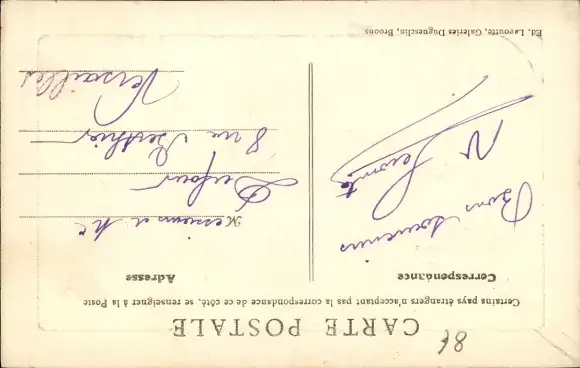 CARTE POSTALE
Certains pays étrangers n'acceptant pas la correspondance de ce côté, se renseigner à la Poste
Correspondance
Adresse
Bons souvenirs
Monsieur et Me
Dufour
8 rue Berthier
Versailles
Ed. Lecoutte, Galeries Duguesclin, Broons